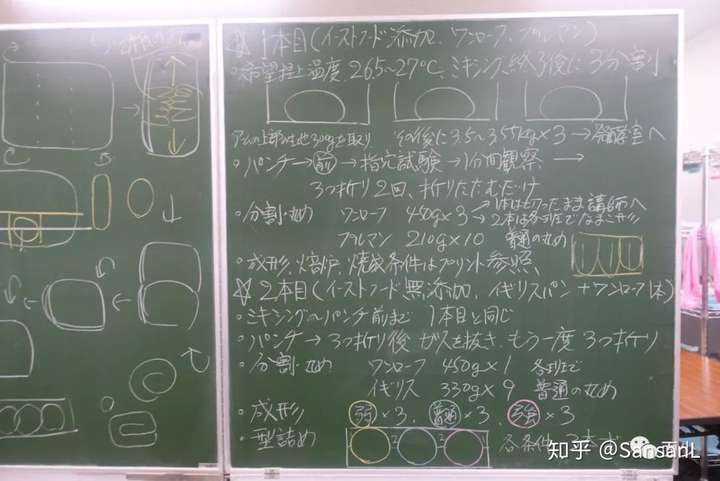 ☆1本目(イーストフード添加、ワンローフ、プルマン)
・希望捏上温度 26.5〜27℃、ミキシング終了後に3分割
アームの上部の生地300gを取り その後に3.5〜3.55kg×3→発酵室へ
・パンチ→前→指穴試験→1分間観察→
3つ折り2回、折りたたむだけ
・分割・丸め ワンローフ 450g×3→
2本は各班でたまごやシ
プルマン 210g×10 普通の丸め
・成形、焙炉、焼成条件はプリント参照
☆2本目(イーストフード無添加、イギリスパン+ワンローフ1本)
・ミキシング〜パンチ前まで 1本目と同じ
・パンチ→3つ折り後 ガスを抜き、もう一度3つ折り
・分割・丸め ワンローフ 450g×1 各班で
イギリス 330g×9 普通の丸め
・成形 弱×3、普通×3、強×3
・型詰め
各条件
知乎 @SansanL